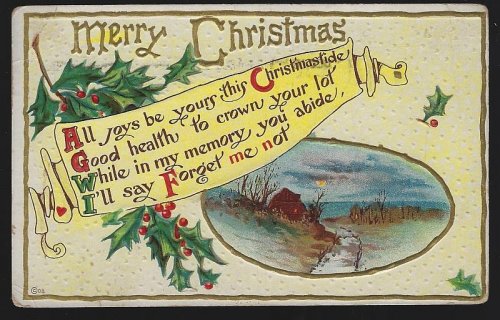 Merry Christmas
All Joys be yours this Christmastide
Good health to crown your lot
While in my memory you abide,
I'll say Forget me not